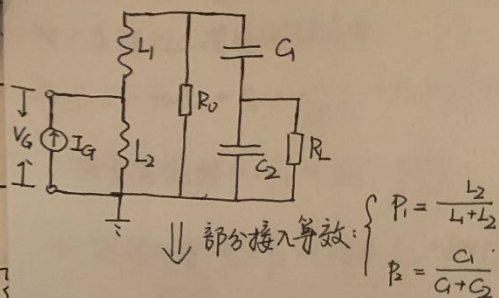 L₁
C₁
R₀
V_G
I_G
L₂
C₂
R_L
⇓ 部分接入等效: { P₁ = L₂/(L₁+L₂)
P₂ = C₁/(C₁+C₂)